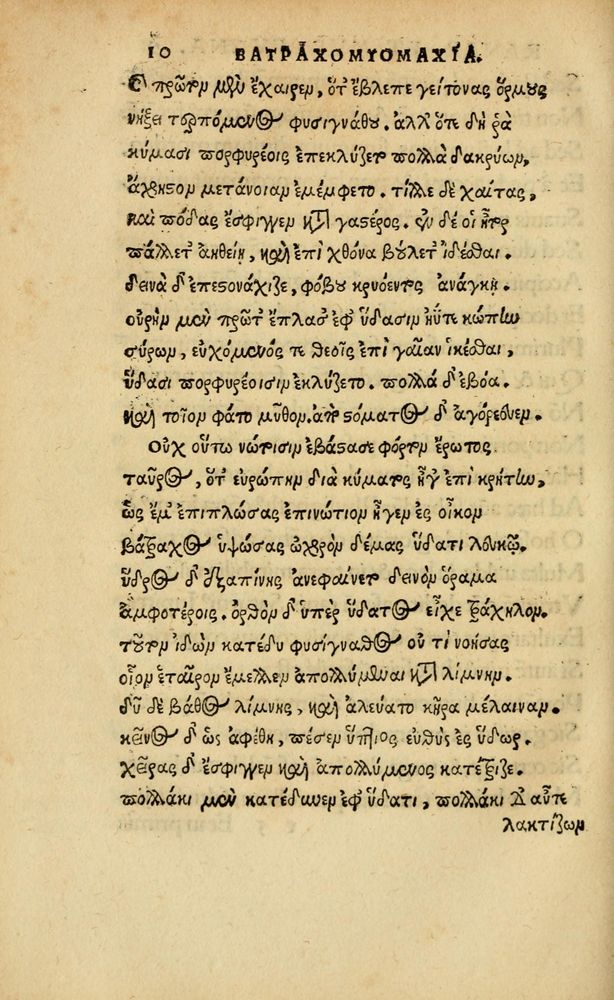 10 ΒΑΤΡΑΧΟΜΥΟΜΑΧΊΑ.
πρῶτον μὲν ἔχαιρεν, ὅτ᾽ ἔβλεπε γείτονας ὅρμους
νήξει τερπόμενος φυσιγνάθου. ἀλλ᾽ ὅτε δή ῥα
κύμασι πορφυρέοις ἐπεκλύζετο πολλὰ δακρύων,
ἄχρηστον μετάνοιαν ἐμέμφετο. τίλλε δὲ χαίτας,
καὶ πόδας ἔσφιγγεν κατὰ γαστέρος. ἐν δέ οἱ ἦτορ
πάλλετ᾽ ἀηθείη, καὶ ἐπὶ χθόνα βούλετ᾽ ἰδέσθαι.
δεινὰ δ᾽ ἐπεστονάχιζε, φόβου κρυόεντος ἀνάγκη.
οὐρὴν μὲν πρῶτ᾽ ἔπλασ᾽ ἐφ᾽ ὕδασιν ἠΰτε κώπην
σύρων, εὐχόμενός τε θεοῖς ἐπὶ γαῖαν ἱκέσθαι,
ὕδασι πορφυρέοισιν ἐκλύζετο. πολλὰ δ᾽ ἐβόα.
καὶ τοῖον φάτο μῦθον. ἀπὸ στόματος δ᾽ ἀγόρευεν.
Οὐχ οὕτω νώτοισιν ἐβάστασε φόρτον ἔρωτος
ταῦρος, ὅτ᾽ εὐρώπην διὰ κύματος ἦγ᾽ ἐπὶ κρήτην,
ὡς ἔμ᾽ ἐπιπλώσας ἐπινώτιον ἦγεν ἐς οἶκον
βάτραχος ὑψώσας ὠχρὸν δέμας ὕδατι λευκῷ.
ὕδρος δ᾽ ἐξαπίνης ἀνεφαίνετο δεινὸν ὅραμα
ἀμφοτέροις. ὀρθὸν δ᾽ ὑπὲρ ὕδατος εἶχε τράχηλον.
τοῦτον ἰδὼν κατέδυ φυσίγναθος οὔ τι νοήσας
οἷον ἑταῖρον ἔμελλεν ἀπολλύμεναι κατὰ λίμνην.
δῦ δὲ βάθος λίμνης, καὶ ἀλεύατο κῆρα μέλαιναν.
κεῖνος δ᾽ ὡς ἀφέθη, πέσεν ὕπτιος εὐθὺς ἐς ὕδωρ.
χεῖρας δ᾽ ἔσφιγγεν καὶ ἀπολλύμενος κατέτριζε.
πολλάκι μὲν κατέδυνεν ἐφ᾽ ὕδατι, πολλάκι δ᾽ αὖτε
λακτίζων